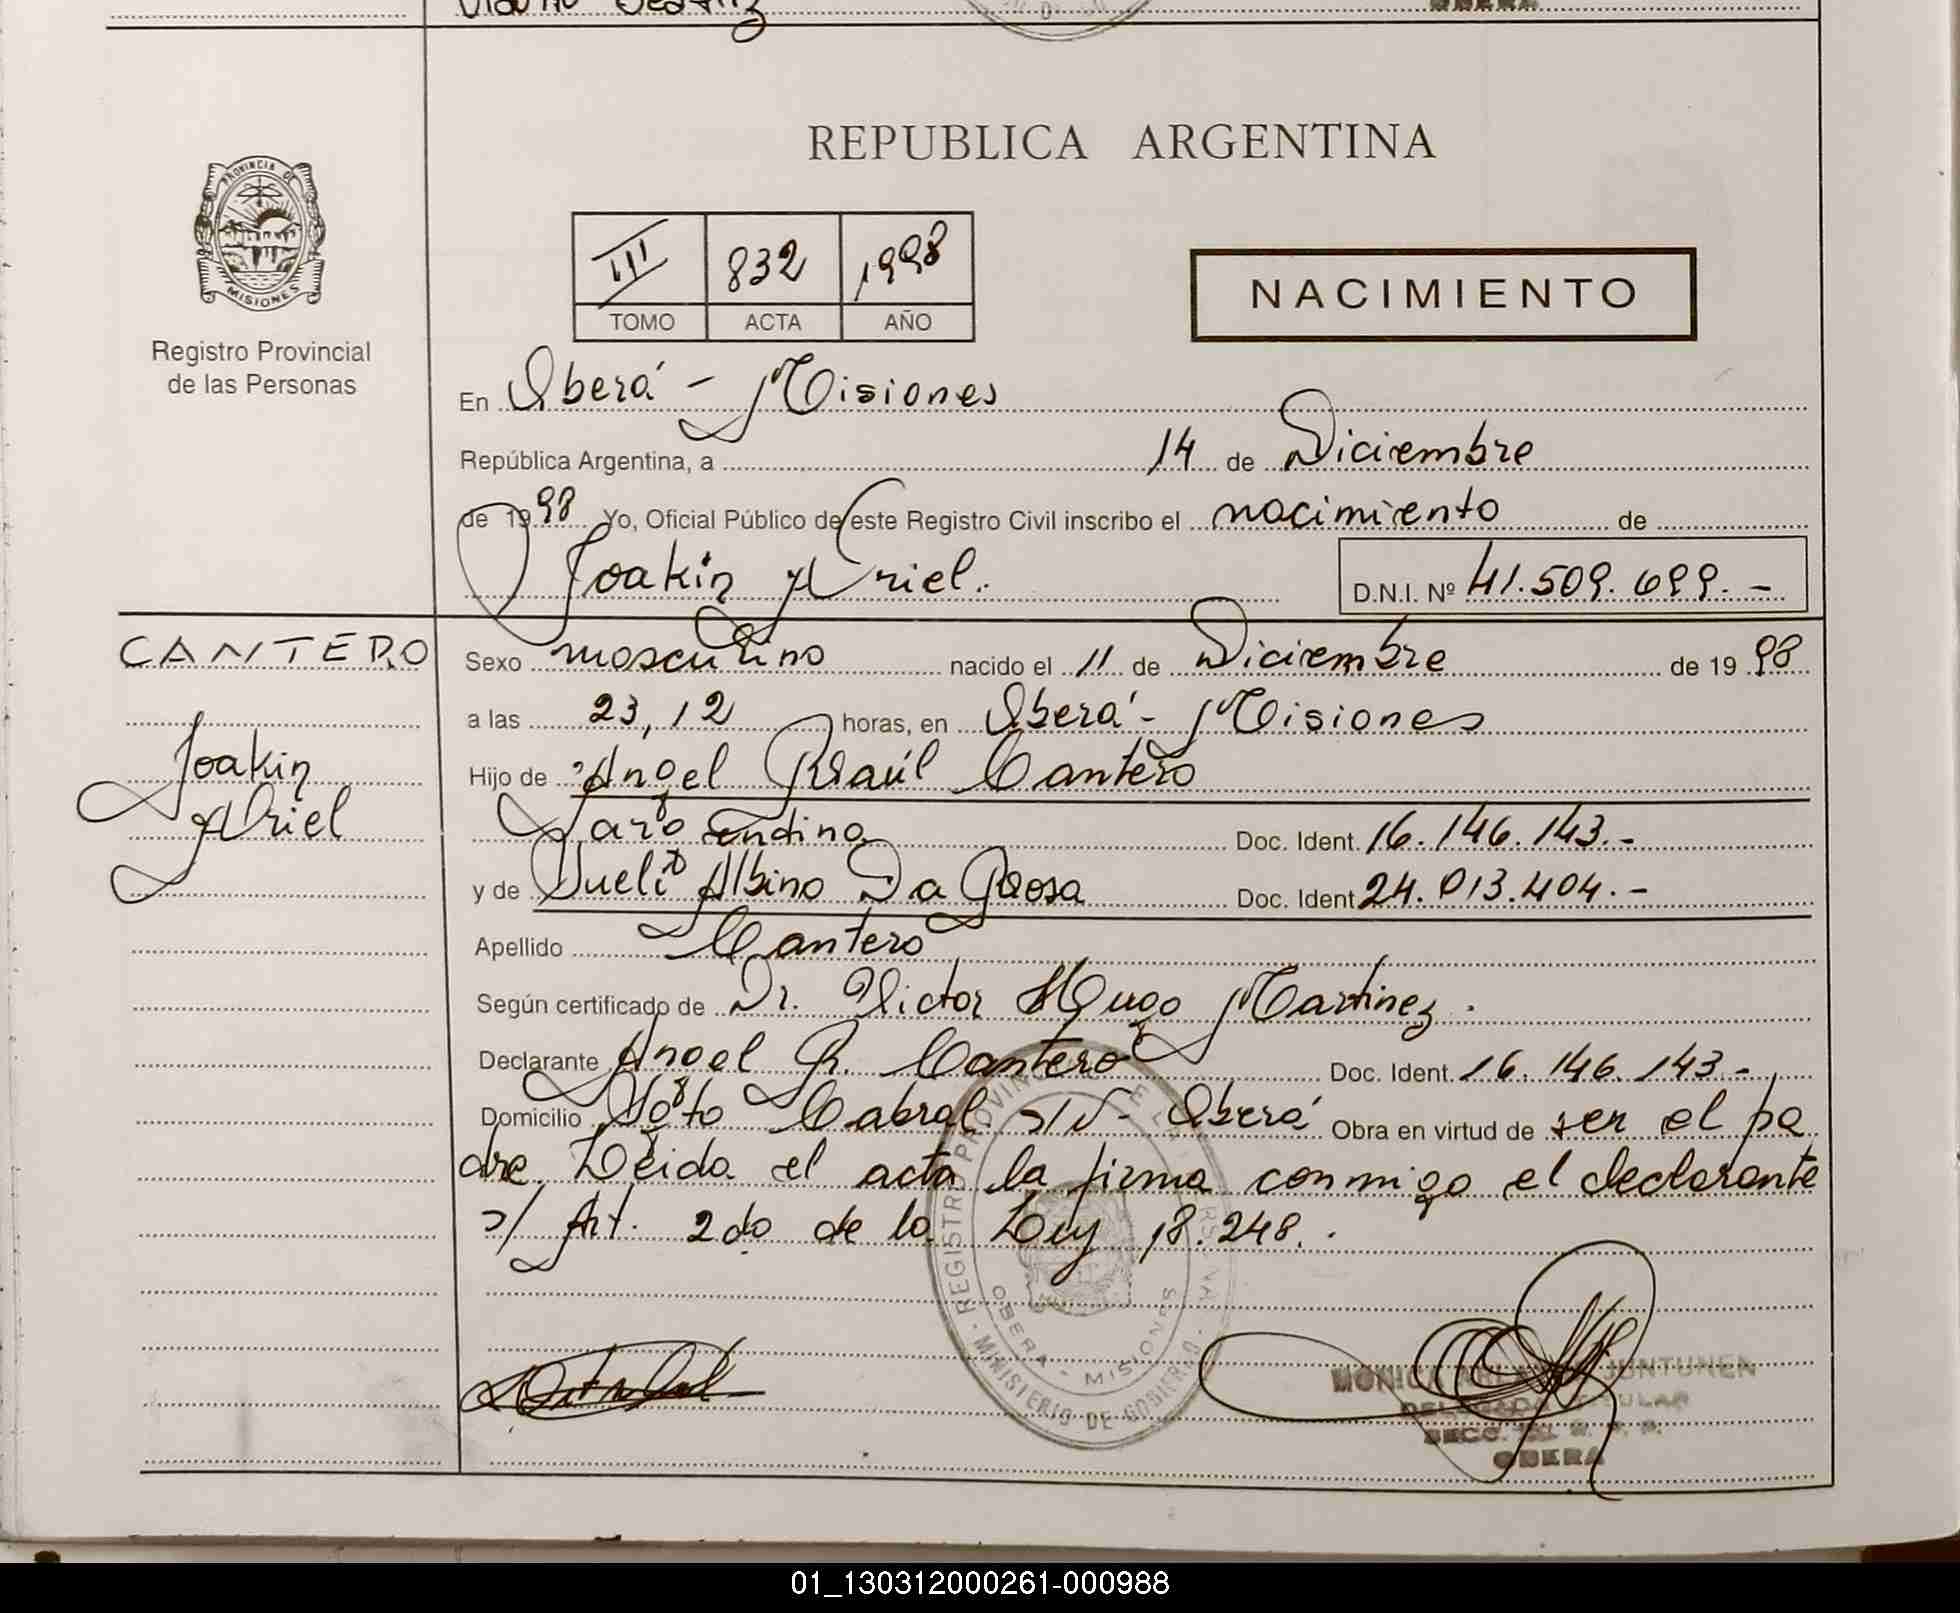 REPUBLICA ARGENTINA
PROVINCIA DE
MISIONES
Registro Provincial
de las Personas
III 832 1998
TOMO ACTA AÑO
NACIMIENTO
En Oberá - Misiones
República Argentina, a 14 de Diciembre
de 1998 Yo, Oficial Público de este Registro Civil inscribo el nacimiento de
Joakin Ariel. D.N.I. Nº 41.509.699.-
CANTERO
Joakin
Ariel
Sexo masculino nacido el 11 de Diciembre de 1998
a las 23,12 horas, en Oberá - Misiones
Hijo de Angel Raúl Cantero
Doc. Ident. 16.146.143.-
y de Albino Da Rosa Doc. Ident. 24.013.404.-
Apellido Cantero
Según certificado de Dr. Victor Hugo Martinez.
Declarante Angel R. Cantero Doc. Ident. 16.146.143.-
Domicilio Cabral s/N - Oberá Obra en virtud de ser el pa
dre. Leida el acta la firma conmigo el declarante
s/ Art. 2do de la Ley 18.248.
OBERA - MISIONES
MINISTERIO DE GOBIERNO
MONICA JUNTUNEN
OBERA
01_130312000261-000988